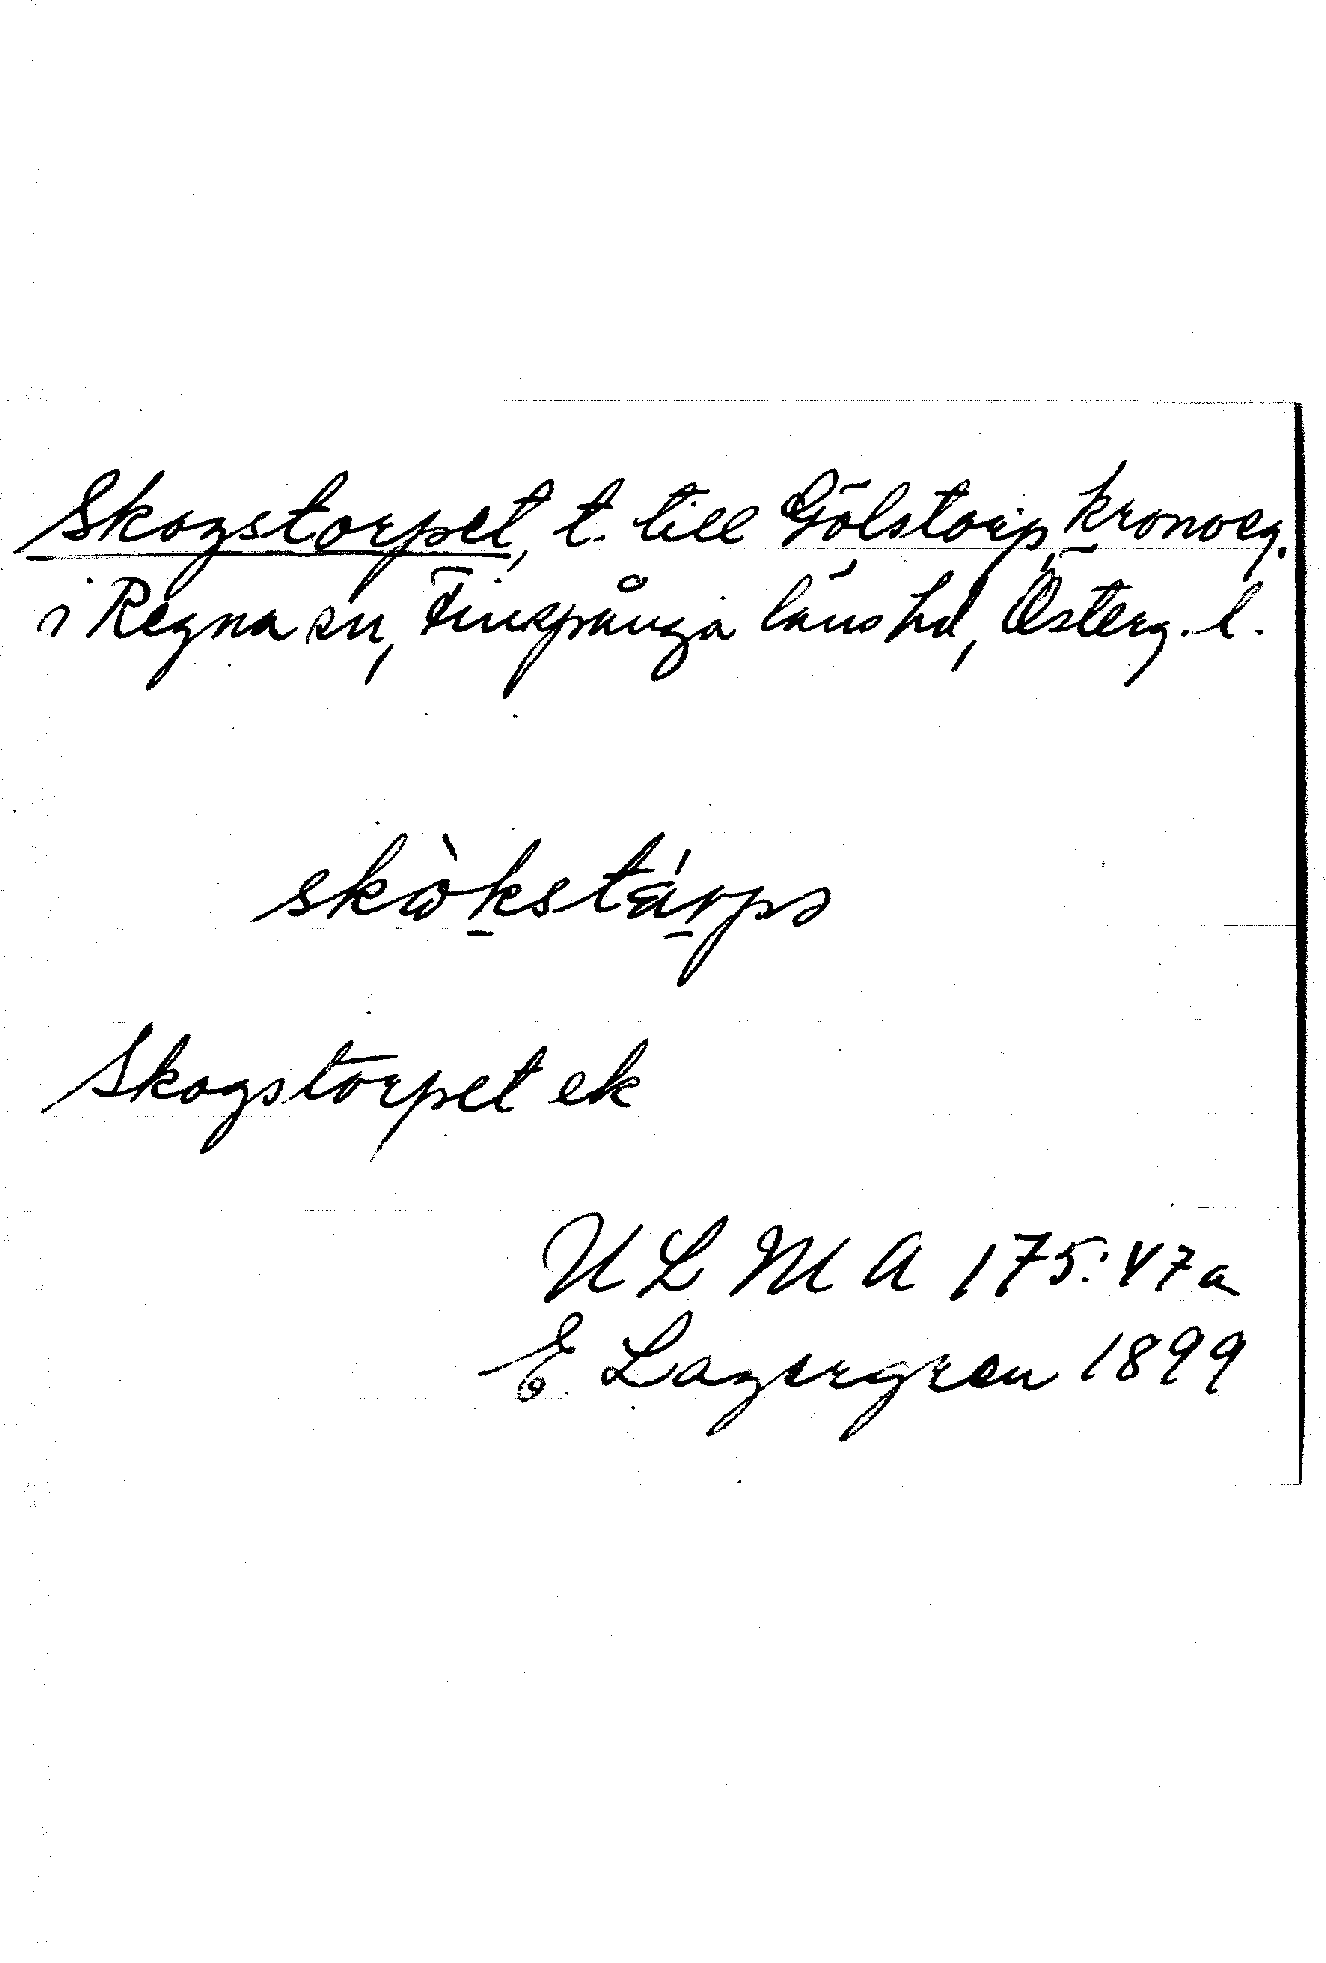 Skogstorpet, t. till Gölstorp, kronoeg.
i Regna sn, Finspånga läns hd, Österg. l.
skὼkstárpə
Skogstorpet ek
ULMA 175:47a
E Lagergren 1899